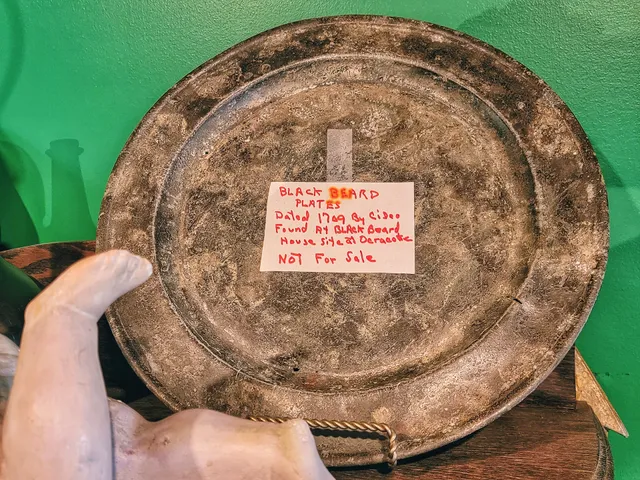 BLACK BEARD
PLATES
Dated 1709 By
Found At BLACK Beard
House Site at
NOT For Sale